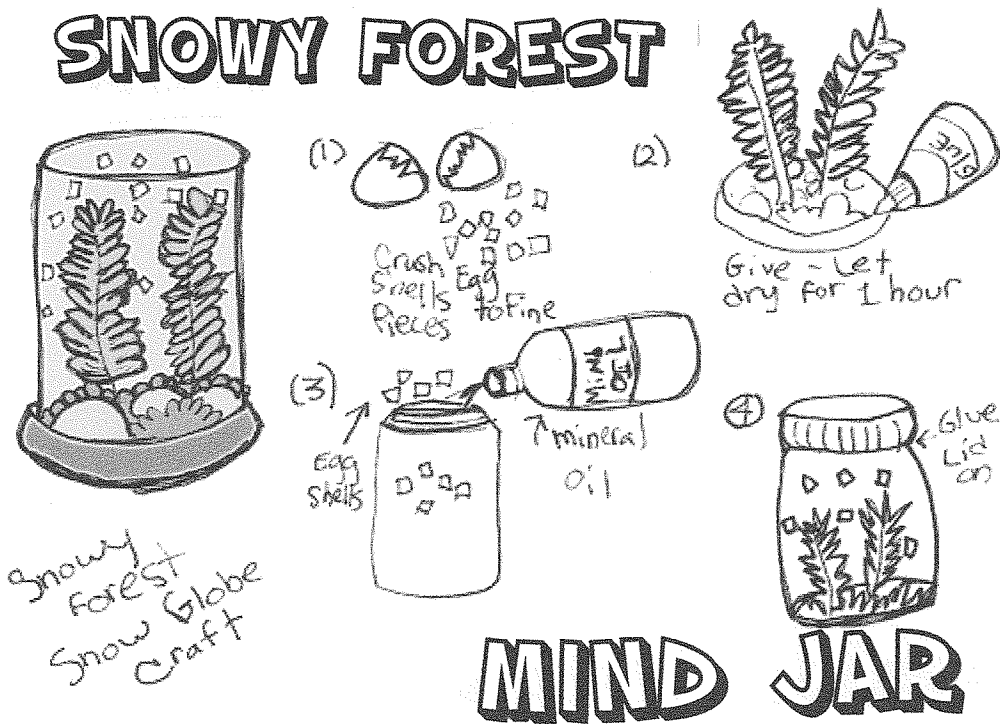 SNOWY FOREST
(1)
Crush Egg
Shells to Fine
Pieces
(2)
GLUE
Give - Let
dry for 1 hour
(3)
Egg
Shells
OIL
mineral
oil
4
Glue
Lid
on
Snowy
Forest
Snow Globe
Craft
MIND JAR